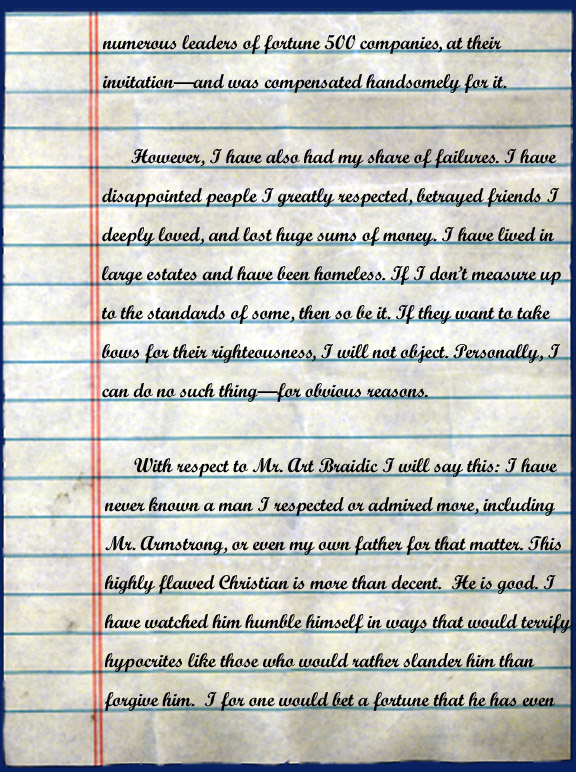 numerous leaders of fortune 500 companies, at their
invitation—and was compensated handsomely for it.
However, I have also had my share of failures. I have
disappointed people I greatly respected, betrayed friends I
deeply loved, and lost huge sums of money. I have lived in
large estates and have been homeless. If I don't measure up
to the standards of some, then so be it. If they want to take
bows for their righteousness, I will not object. Personally, I
can do no such thing—for obvious reasons.
With respect to Mr. Art Braidic I will say this: I have
never known a man I respected or admired more, including
Mr. Armstrong, or even my own father for that matter. This
highly flawed Christian is more than decent.  He is good. I
have watched him humble himself in ways that would terrify
hypocrites like those who would rather slander him than
forgive him.  I for one would bet a fortune that he has even